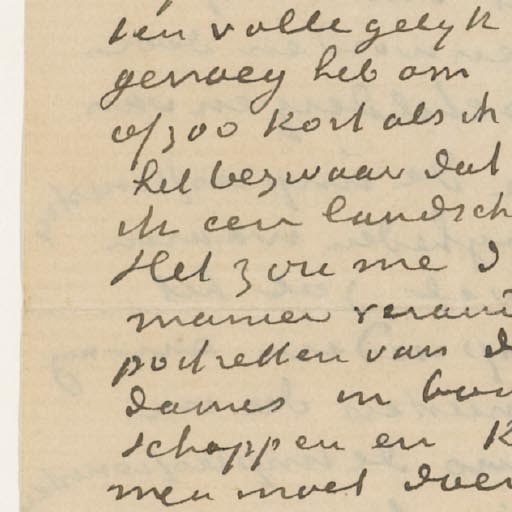 ten volle gelijk
genoeg heb om
of zoo kort als ik
het bezwaar dat
ik een landsch
Het zou me d
manier verand
portretten van d
dames in bon
schappen en k
men moet doen